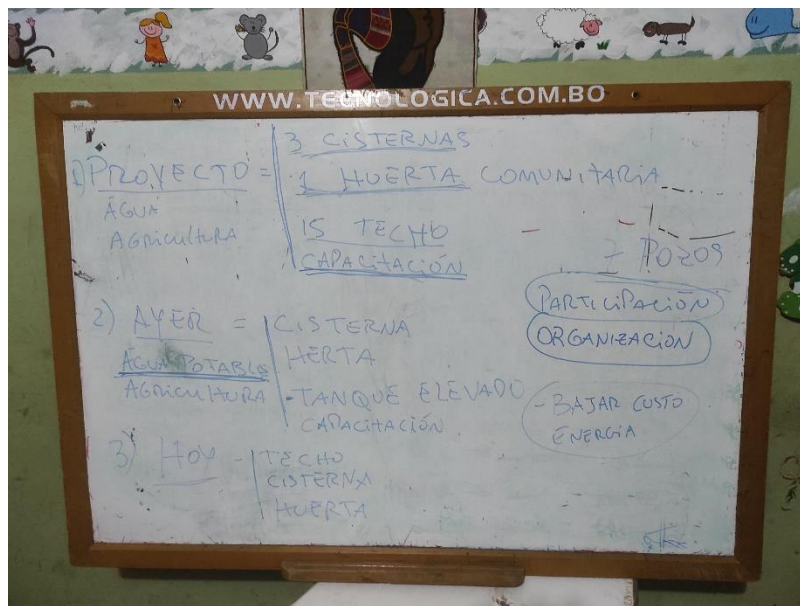 WWW.TECNOLOGICA.COM.BO
1) PROYECTO =
ÁGUA
AGRICULTURA
3 CISTERNAS
1 HUERTA COMUNITARIA
15 TECHO
CAPACITACIÓN
POZOS
PARTICIPACIÓN
ORGANIZACIÓN
- BAJAR CUSTO
ENERGIA
2) AYER =
ÁGUA POTABLE
AGRICULTURA
CISTERNA
HERTA
- TANQUE ELEVADO
CAPACITACIÓN
3) HOY -
TECHO
CISTERNA
HUERTA